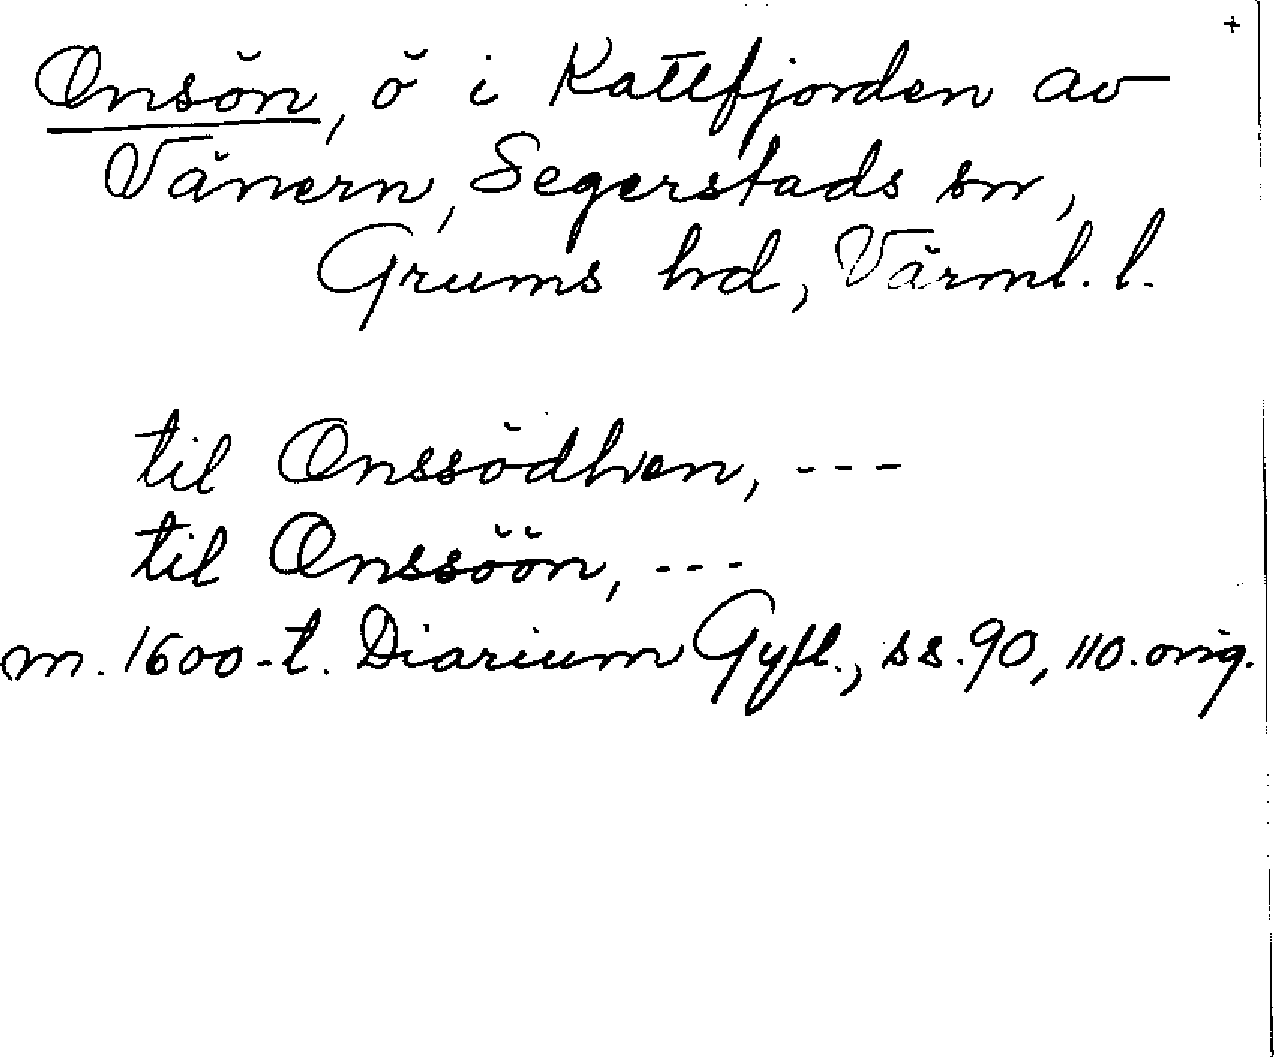 +
Onsön, ö i Kattfjorden av
Vänern, Segerstads sn,
Grums hd, Värml. l.
til Onssödhen, ---
til Onssöön, ---
m. 1600-t. Diarium Gyll., ss. 90, 110. orig.